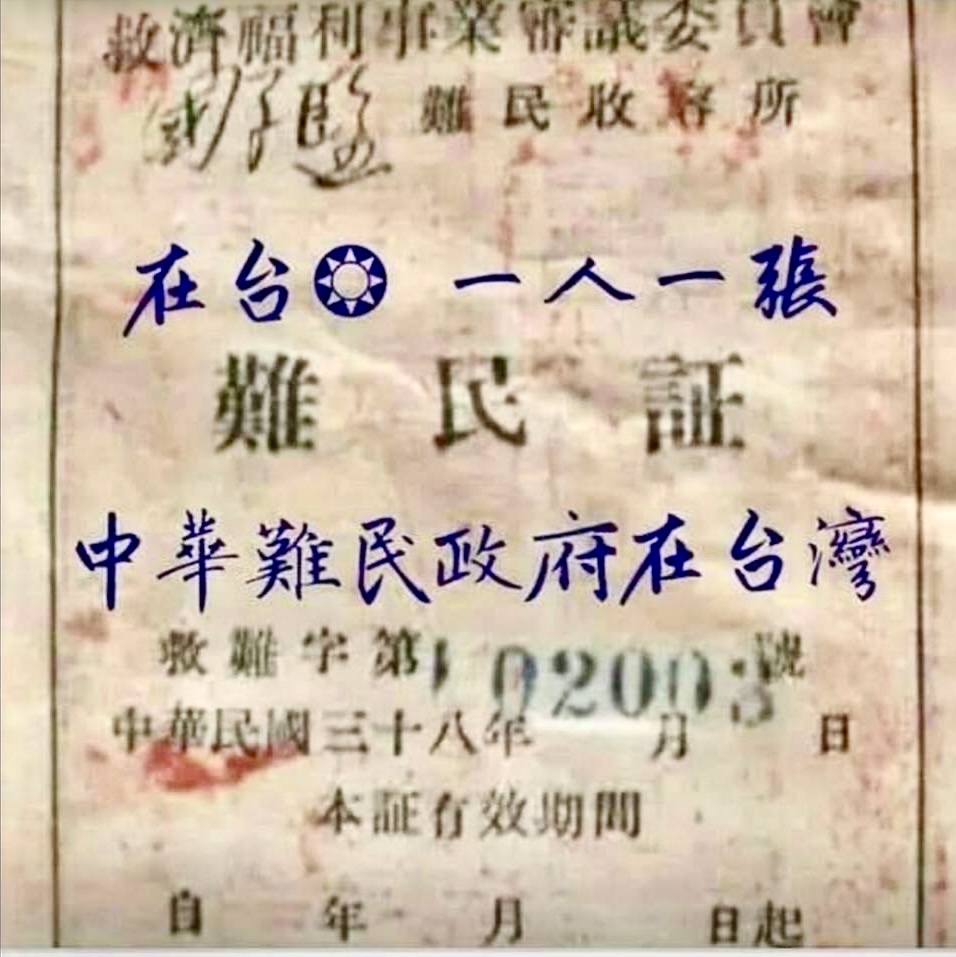 救濟福利事業審議委員會
難民收容所
在台 一人一張
難民証
中華難民政府在台灣
救難字第10203號
中華民國三十八年 月 日
本証有效期間
自 年 月 日起